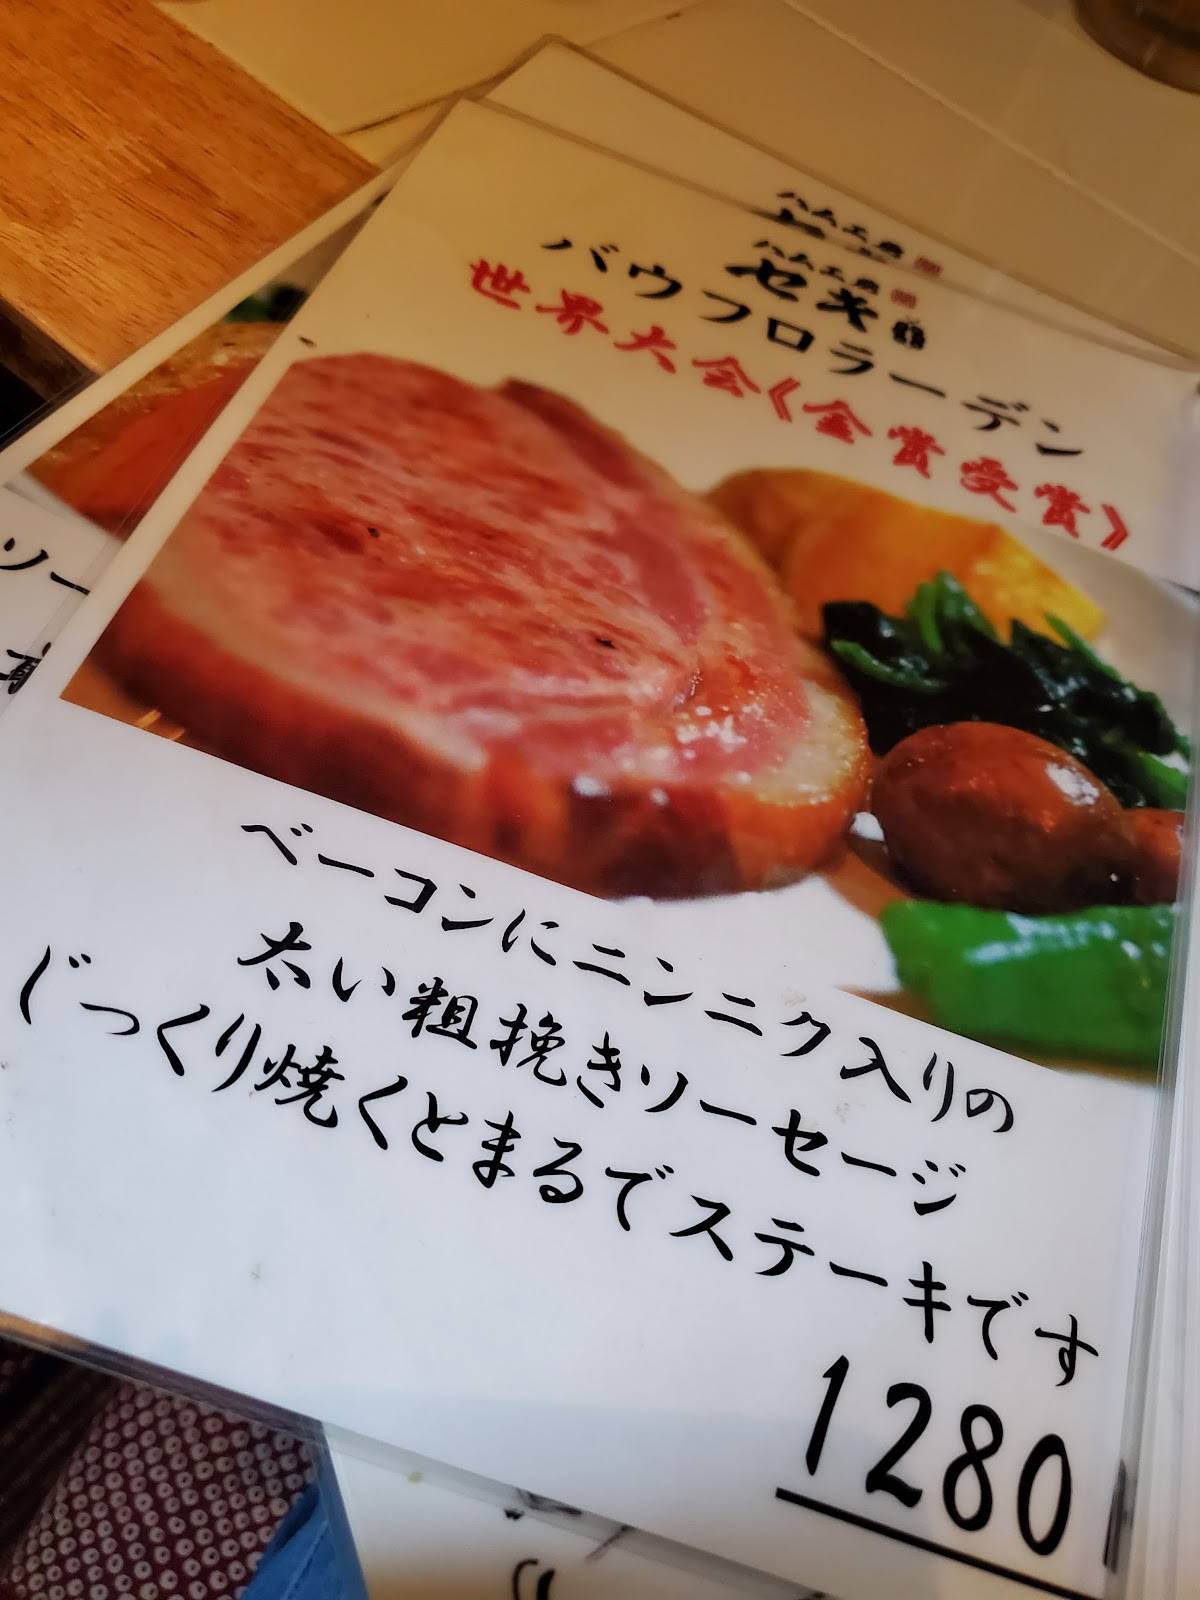 ハム工房
ハム工房
セキ
バウフローラーデン
世界大会《金賞受賞》
ベーコンにニンニク入りの
太い粗挽きソーセージ
じっくり焼くとまるでステーキです
1280
ソー